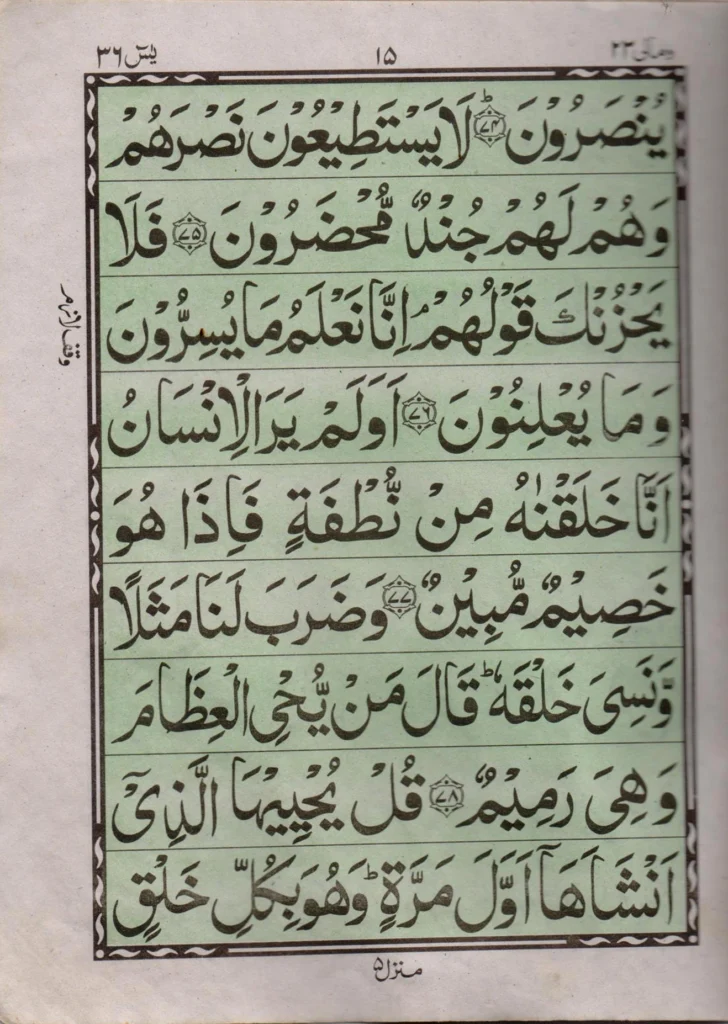 یٰسٓ ۳۶ ۱۵ ومالی ۲۳
یُنْصَرُوْنَ ﴿۷۴﴾ؕ لَا یَسْتَطِیْعُوْنَ نَصْرَهُمْ
وَهُمْ لَهُمْ جُنْدٌ مُّحْضَرُوْنَ ﴿۷۵﴾ فَلَا
یَحْزُنْكَ قَوْلُهُمْۘ اِنَّا نَعْلَمُ مَا یُسِرُّوْنَ
وَمَا یُعْلِنُوْنَ ﴿۷۶﴾ اَوَلَمْ یَرَ الْاِنْسَانُ
اَنَّا خَلَقْنٰهُ مِنْ نُّطْفَةٍ فَاِذَا هُوَ
خَصِیْمٌ مُّبِیْنٌ ﴿۷۷﴾ وَضَرَبَ لَنَا مَثَلًا
وَّنَسِیَ خَلْقَهٗؕ قَالَ مَنْ یُّحْیِ الْعِظَامَ
وَهِیَ رَمِیْمٌ ﴿۷۸﴾ قُلْ یُحْیِیْهَا الَّذِیْۤ
اَنْشَاَهَاۤ اَوَّلَ مَرَّةٍؕ وَهُوَ بِكُلِّ خَلْقٍ
وقف لازم
منزل ۵